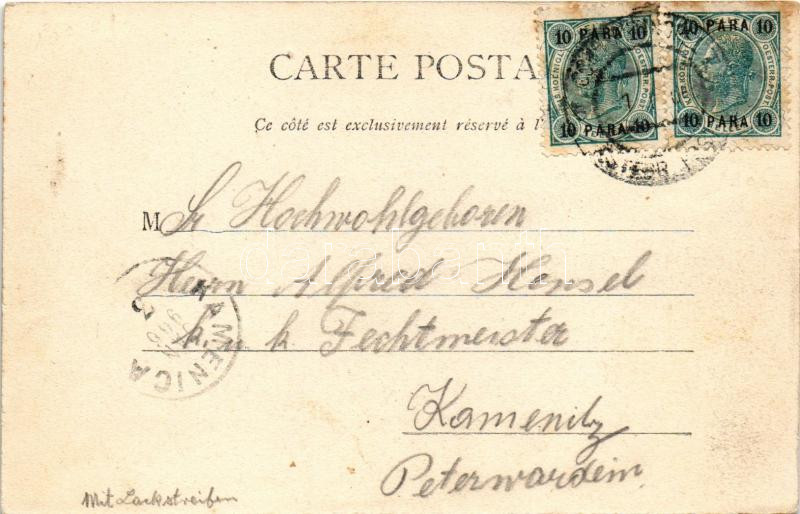 CARTE POSTA
Ce côté est exclusivement réservé à l'
10 PARA 10
10 PARA 10
10 PARA 10
10 PARA 10
M Sr Hochwohlgeboren
Herrn Alfred Hensel
k. u. k Fechtmeister
Kamenitz
Peterwardein
KAMENICA
Mit Lackstreifen